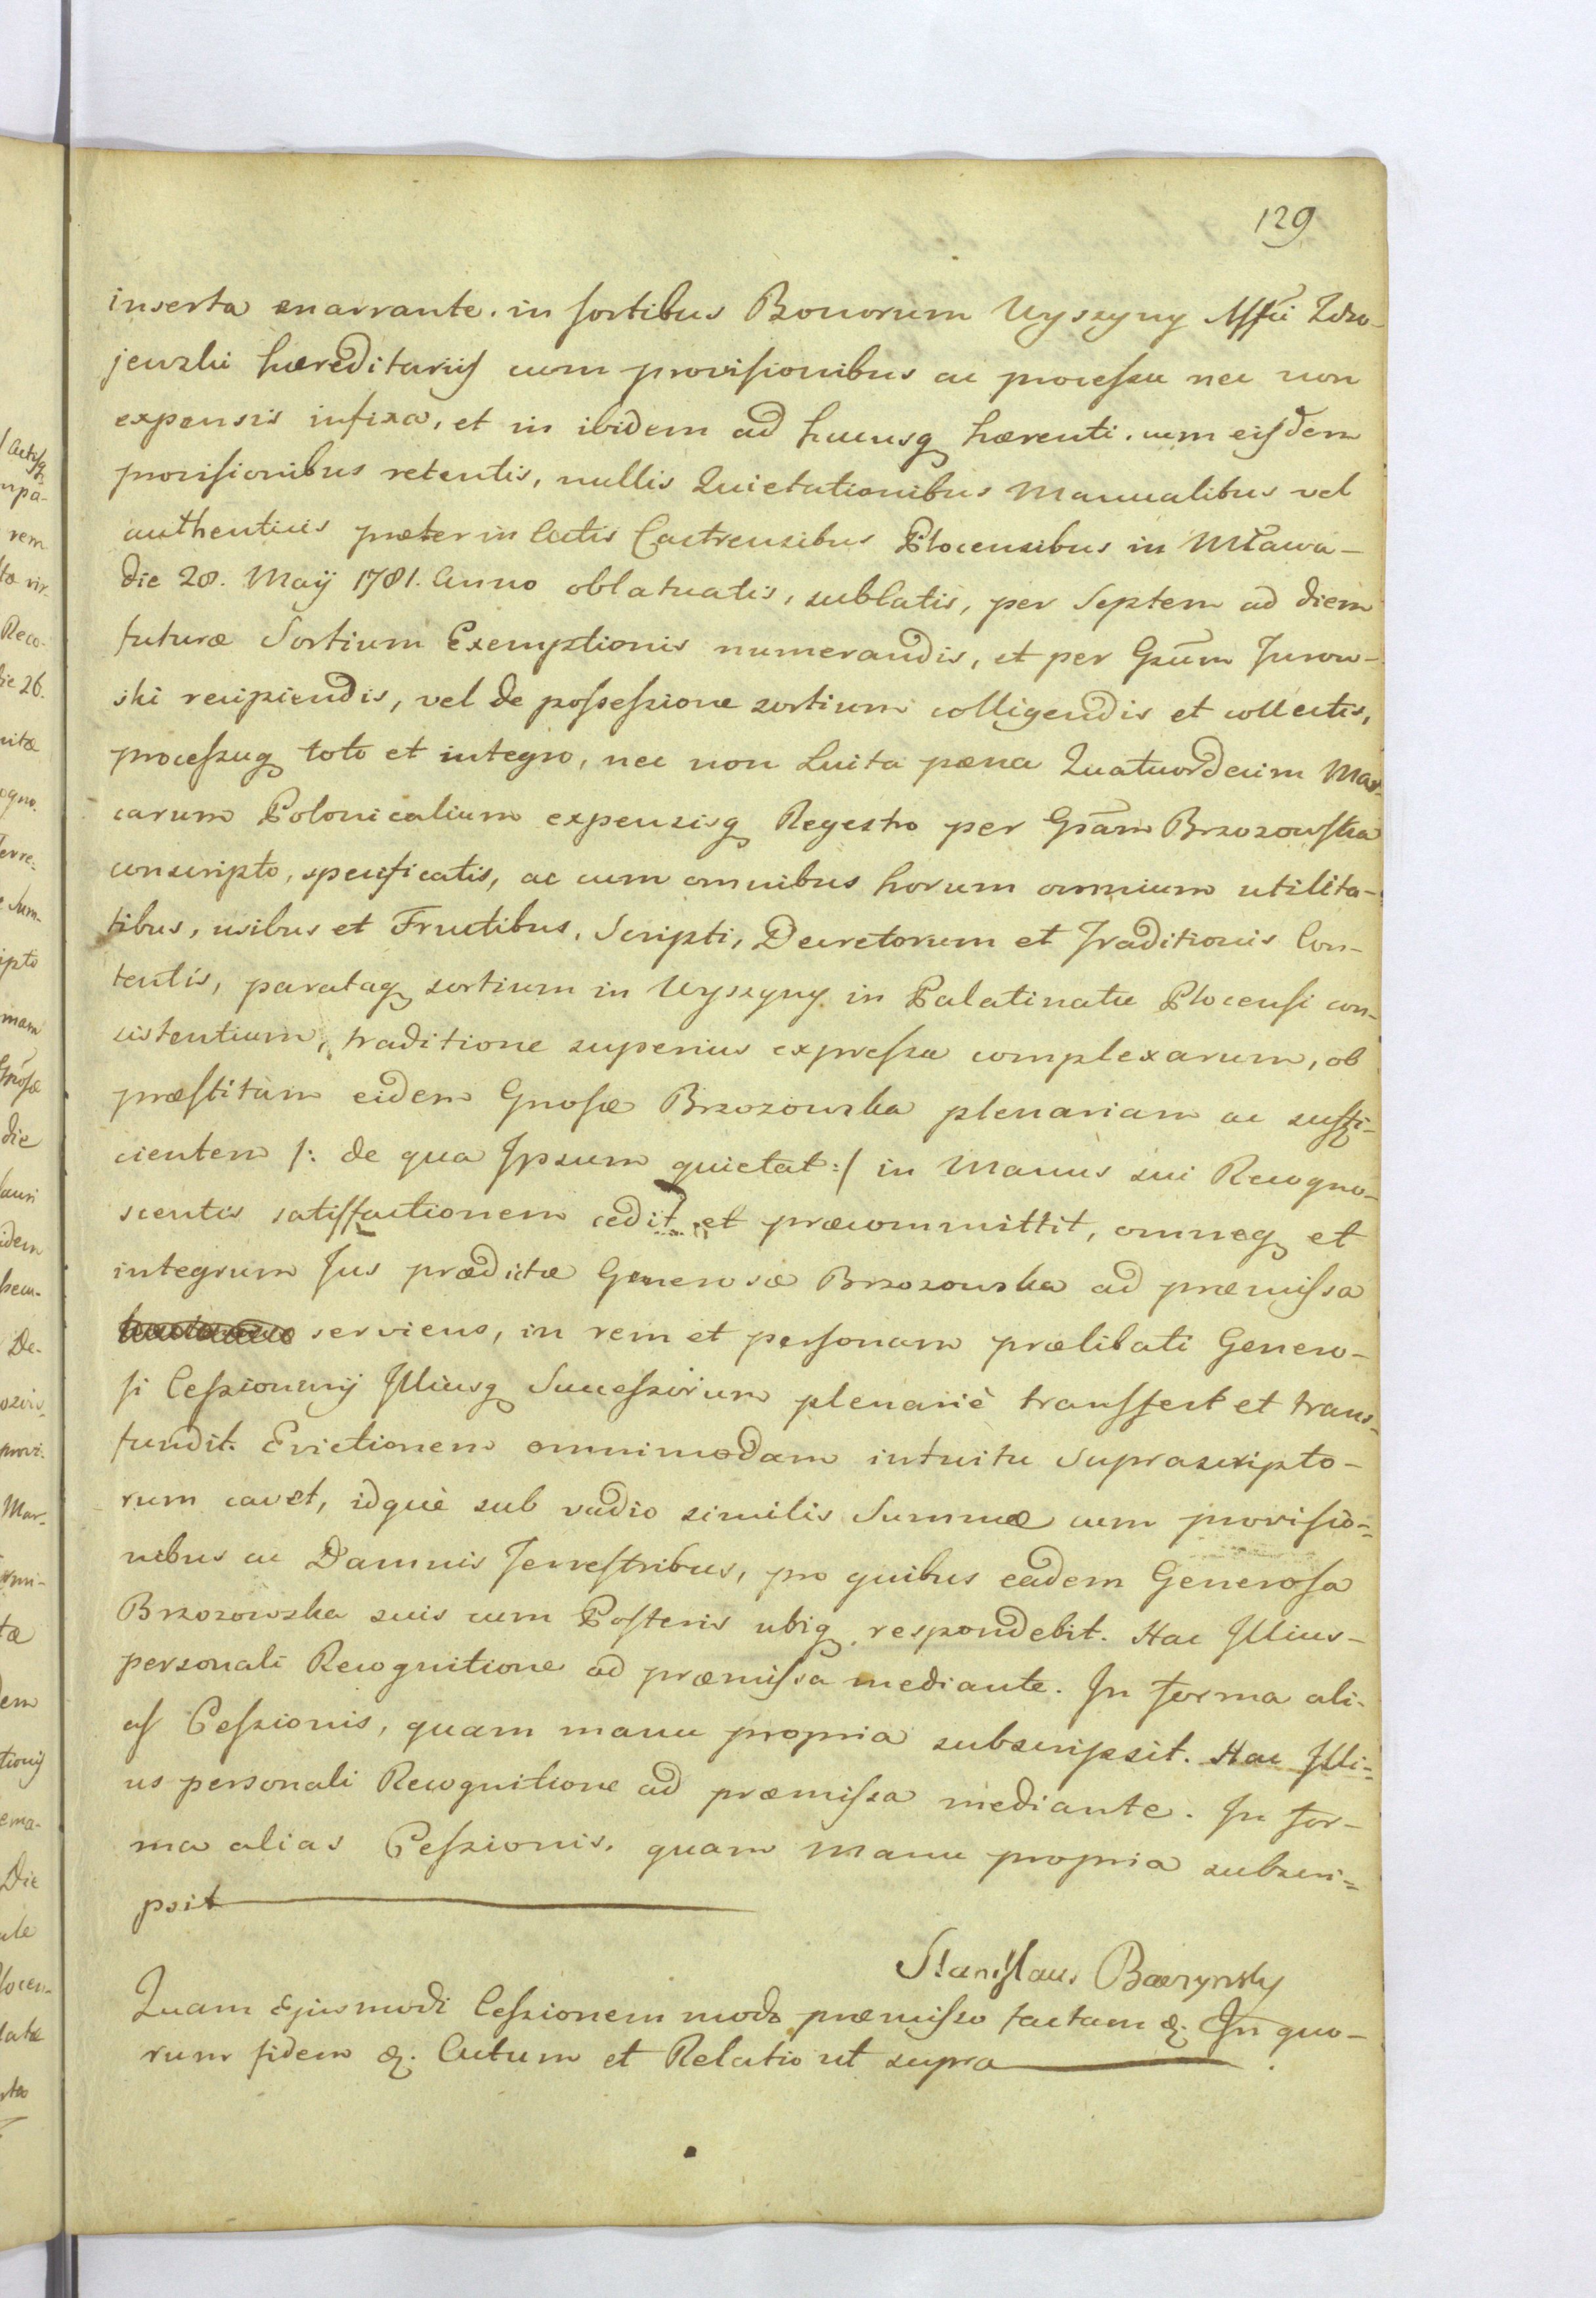 129
inserta enarrante. in sortibus Bonorum Wyszyny Mffci Zdro-
jewski hæreditariis cum provisionibus ac processu nec non
expensis infixa, et in ibidem ad hucusq hærenti. cum eisdem
provisionibus retentis, nullis Quietationibus Manualibus vel
authenticis præter in Actis Castrensibus Plocensibus in Mława-
die 28. Maÿ 1781. Anno oblatuatis, sublatis, per Septem ad diem
futuræ Sortium Exemptionis numerandis, et per Gsum Jurow-
ski recipiendis, vel de possessione sortium colligendis et collectis,
processuq toto et integro, nec non Luita pæna Quatuordecim Mar-
carum Polonicalium expensisq Regestro per Gsam Brzozowska
conscripto, specificatis, ac cum omnibus horum omnium utilita-
tibus, usibus et Fructibus, Scripti, Decretorum et Traditionis Con-
tentis, parataq sortium in Wyszyny in Palatinatu Plocensi con-
sistentium, traditione superius expressa complexarum, ob
præstitam eidem Gnosæ Brzozowska plenariam ac suffi-
cientem /: de qua Ipsum quietat :/ in Manus sui Recogno-
scentis satisfactionem cedit, et præcommittit, omneq et
integrum Jus prædictæ Generosæ Brzozowska ad præmissa
serviens, in rem et personam prælibati Genero-
si Cessionarij Illiusq Successorum plenariè transfert et trans-
fundit. Evictionem omnimodam intuitu Suprascripto-
rum cavet, idquè sub vadio similis Summæ cum provisio-
nibus ac Damnis Terrestribus, pro quibus eadem Generosa
Brzozowska suis cum Posteris ubiq respondebit. Hac Illius-
personali Recognitione ad præmissa mediante. In forma ali-
as Cessionis, quam manu propria subscripsit. Hac Illi-
us personali Recognitione ad præmissa mediante. In for-
ma alias Cessionis, quam manu propria subscri-
psit
Stanislaus Baczynsky
Quam Ejusmodi Cessionem modo præmisso factam &. In quo-
rum fidem &. Actum et Relatio ut supra